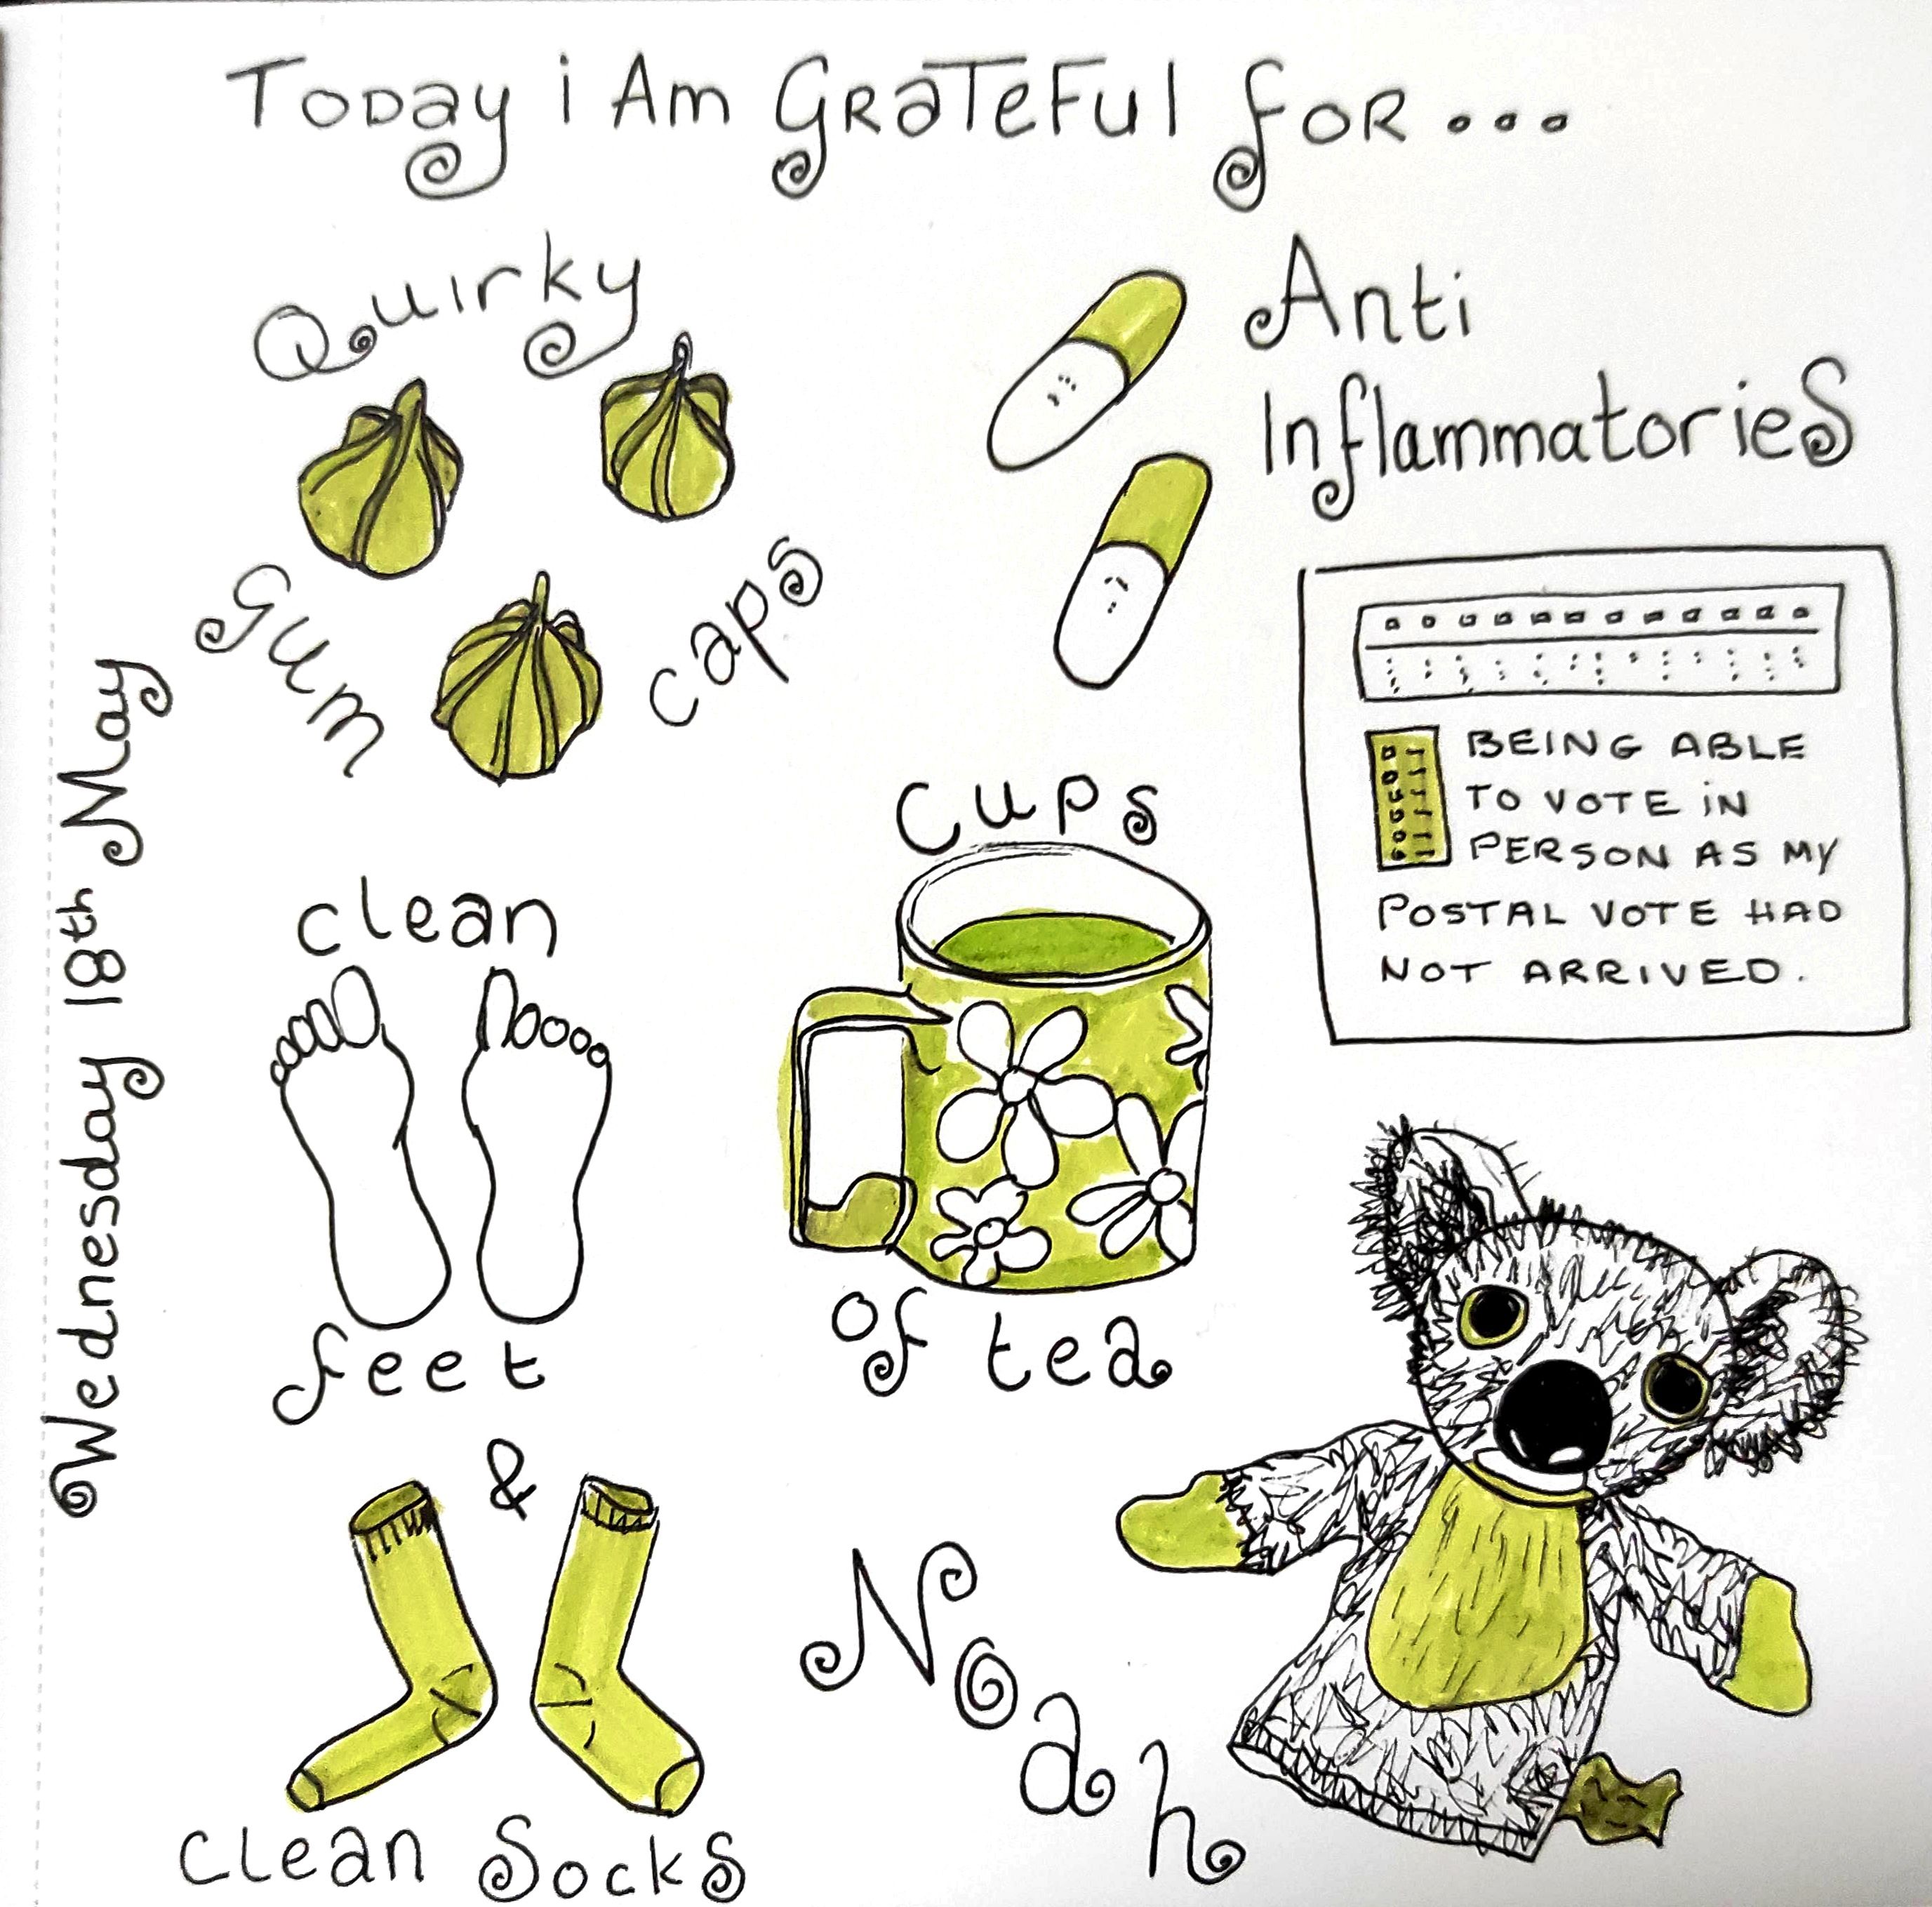 Today i Am Grateful for...
Quirky
Gum caps
Anti
Inflammatories
BEING ABLE
TO VOTE iN
PERSON AS MY
POSTAL VOTE HAD
NOT ARRIVED.
Wednesday 18th May
clean
feet
&
clean Socks
cups
of tea
Noah